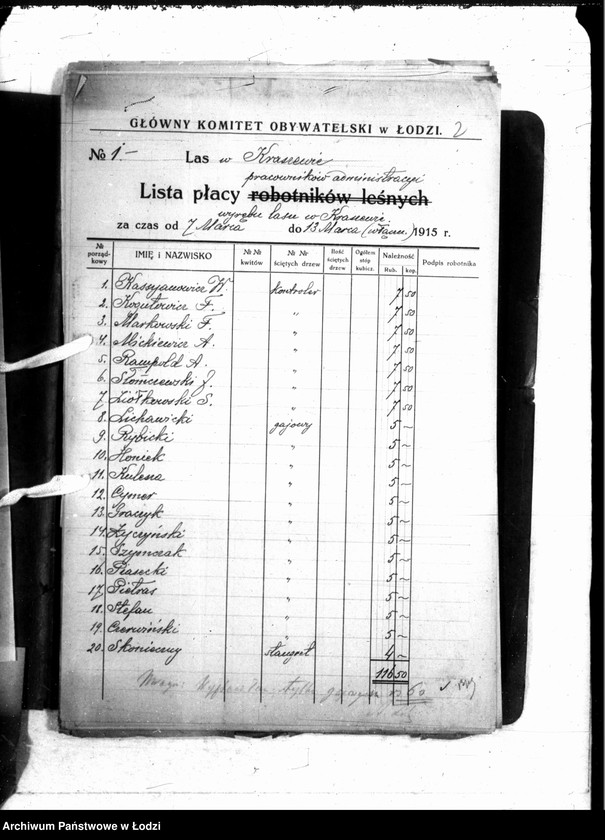 GŁÓWNY KOMITET OBYWATELSKI w ŁODZI. 2
№ 1.— Las w Kraszewie
pracowników administracyi
Lista płacy robotników leśnych
wyrębu lasu w Kraszewie.
za czas od 7 Marca do 13 Marca (włącz.) 1915 r.
№ porządkowy IMIĘ i NAZWISKO №№ kwitów №№ ściętych drzew Ilość ściętych drzew Ogółem stóp kubicz. Należność Rub. kop. Podpis robotnika
1. Kassyanowicz W. kontroler 7 50
2. Kogutowicz F. " 7 50
3. Markowski F. " 7 50
4. Mickiewicz A. " 7 50
5. Rampold A. " 7 50
6. Słomczewski J. " 7 50
7. Ziółkowski S. " 7 50
8. Lichawicki gajowy 5 —
9. Rybicki " 5 —
10. Honiek " 5 —
11. Kulesza " 5 —
12. Cymer " 5 —
13. Graczyk " 5 —
14. Życzyński " 5 —
15. Szymczak " 5 —
16. Piasecki " 5 —
17. Pietras " 5 —
18. Stefan " 5 —
19. Czerwiński " 5 —
20. Skonieczny 4 —
116 50
Uwaga:
Archiwum Państwowe w Łodzi